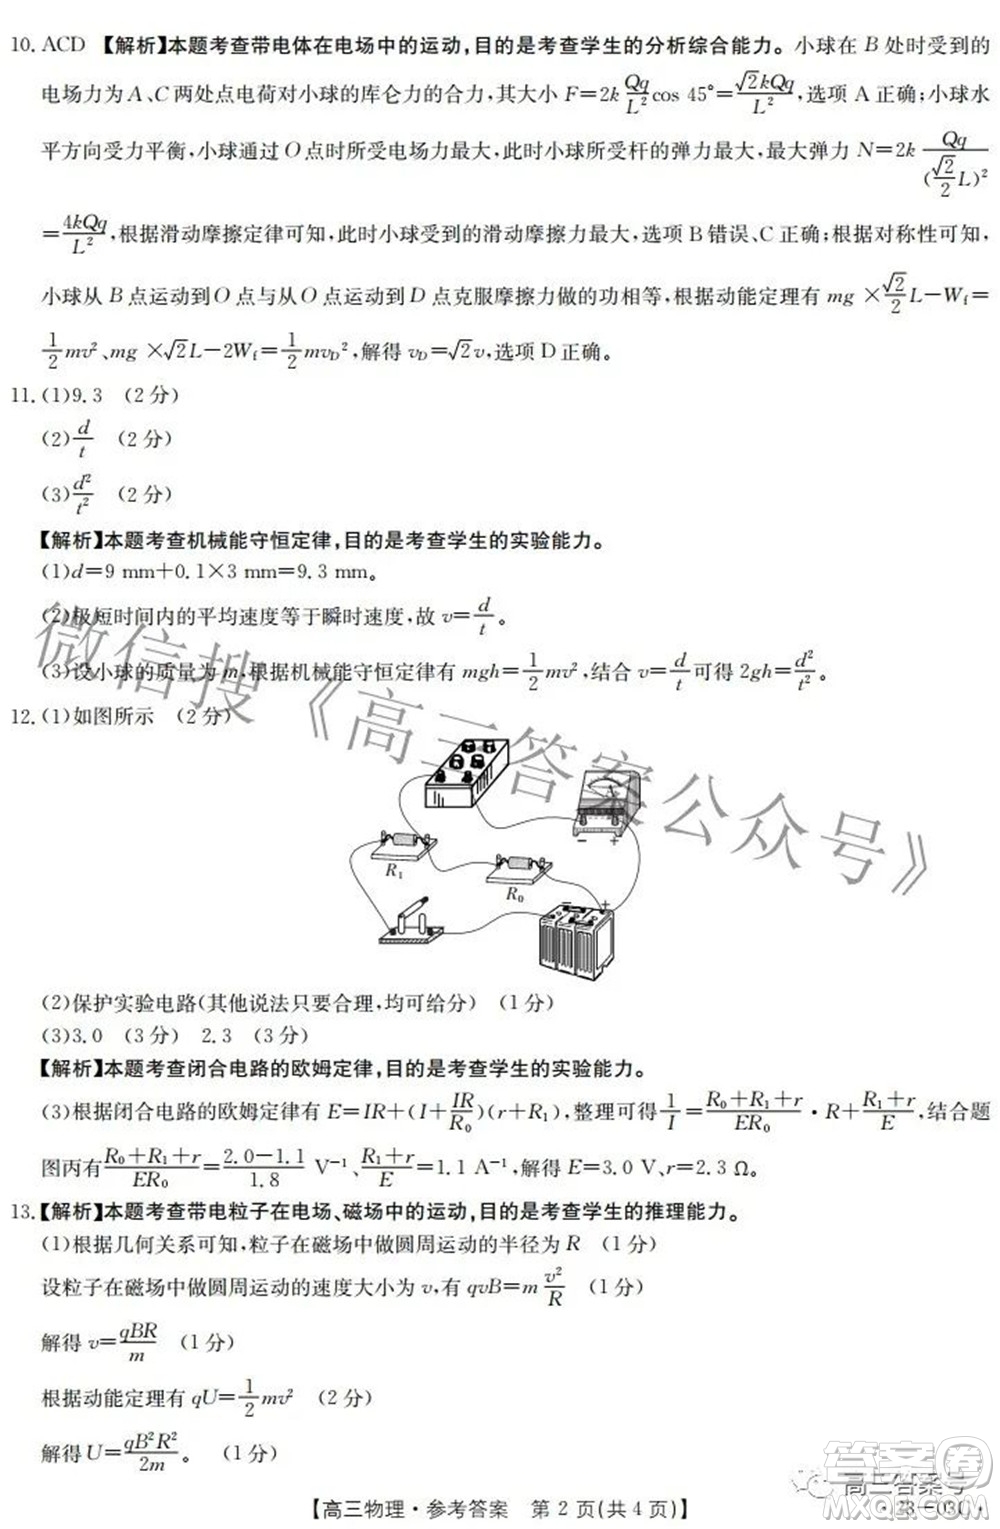 10. ACD 【解析】本题考查带电体在电场中的运动,目的是考查学生的分析综合能力。小球在 B 处时受到的
电场力为A、C两处点电荷对小球的库仑力的合力,其大小 F=2k\frac{Qq}{L^2}cos 45°=\frac{\sqrt{2}kQq}{L^2},选项 A 正确;小球水
平方向受力平衡,小球通过O点时所受电场力最大,此时小球所受杆的弹力最大,最大弹力 N=2k\frac{Qq}{(\frac{\sqrt{2}}{2}L)^2}
=\frac{4kQq}{L^2},根据滑动摩擦定律可知,此时小球受到的滑动摩擦力最大,选项B错误、C正确;根据对称性可知,
小球从B点运动到O点与从O点运动到D点克服摩擦力做的功相等,根据动能定理有 mg×\frac{\sqrt{2}}{2}L-W_f=
\frac{1}{2}mv^2、mg×\sqrt{2}L-2W_f=\frac{1}{2}mv_D^2,解得 v_D=\sqrt{2}v,选项D正确。
11. (1)9.3 (2分)
(2)\frac{d}{t} (2分)
(3)\frac{d^2}{t^2} (2分)
【解析】本题考查机械能守恒定律,目的是考查学生的实验能力。
(1)d=9 mm+0.1×3 mm=9.3 mm。
(2)极短时间内的平均速度等于瞬时速度,故 v=\frac{d}{t}。
(3)设小球的质量为m,根据机械能守恒定律有 mgh=\frac{1}{2}mv^2,结合 v=\frac{d}{t}可得 2gh=\frac{d^2}{t^2}。
12. (1)如图所示 (2分)
A
- +
R_1
R_0
- +
(2)保护实验电路(其他说法只要合理,均可给分) (1分)
(3)3.0 (3分) 2.3 (3分)
【解析】本题考查闭合电路的欧姆定律,目的是考查学生的实验能力。
(3)根据闭合电路的欧姆定律有 E=IR+(I+\frac{IR}{R_0})(r+R_1),整理可得\frac{1}{I}=\frac{R_0+R_1+r}{ER_0}·R+\frac{R_1+r}{E},结合题
图丙有\frac{R_0+R_1+r}{ER_0}=\frac{2.0-1.1}{1.8} V^{-1}、\frac{R_1+r}{E}=1.1 A^{-1},解得 E=3.0 V、r=2.3 Ω。
13.【解析】本题考查带电粒子在电场、磁场中的运动,目的是考查学生的推理能力。
(1)根据几何关系可知,粒子在磁场中做圆周运动的半径为R (1分)
设粒子在磁场中做圆周运动的速度大小为v,有 qvB=m\frac{v^2}{R} (1分)
解得 v=\frac{qBR}{m} (1分)
根据动能定理有 qU=\frac{1}{2}mv^2 (2分)
解得U=\frac{qB^2R^2}{2m}。 (1分)
【高三物理·参考答案 第2页(共4页)】
·23-03C·
微信搜《高三答案公众号》
高三答案号
答案卷
MXQE.COM